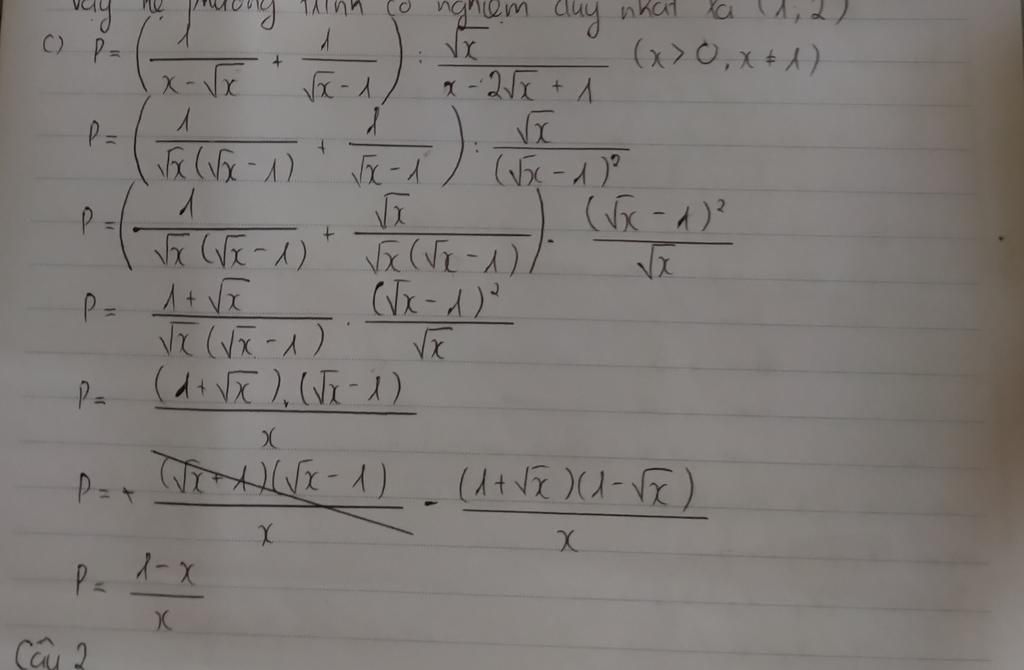 Vậy hệ phương trình có nghiệm duy nhất là (1,2)
c) P = (1/(x - √x) + 1/(√x - 1)) : √x/(x - 2√x + 1) (x > 0, x ≠ 1)
P = (1/(√x(√x - 1)) + 1/(√x - 1)) : √x/(√x - 1)²
P = (1/(√x(√x - 1)) + √x/(√x(√x - 1))) . (√x - 1)²/√x
P = (1 + √x)/(√x(√x - 1)) . (√x - 1)²/√x
P = (1 + √x).(√x - 1)/x
P = + (√x + 1)(√x - 1)/x - (1 + √x)(1 - √x)/x
P = (1 - x)/x
Câu 2